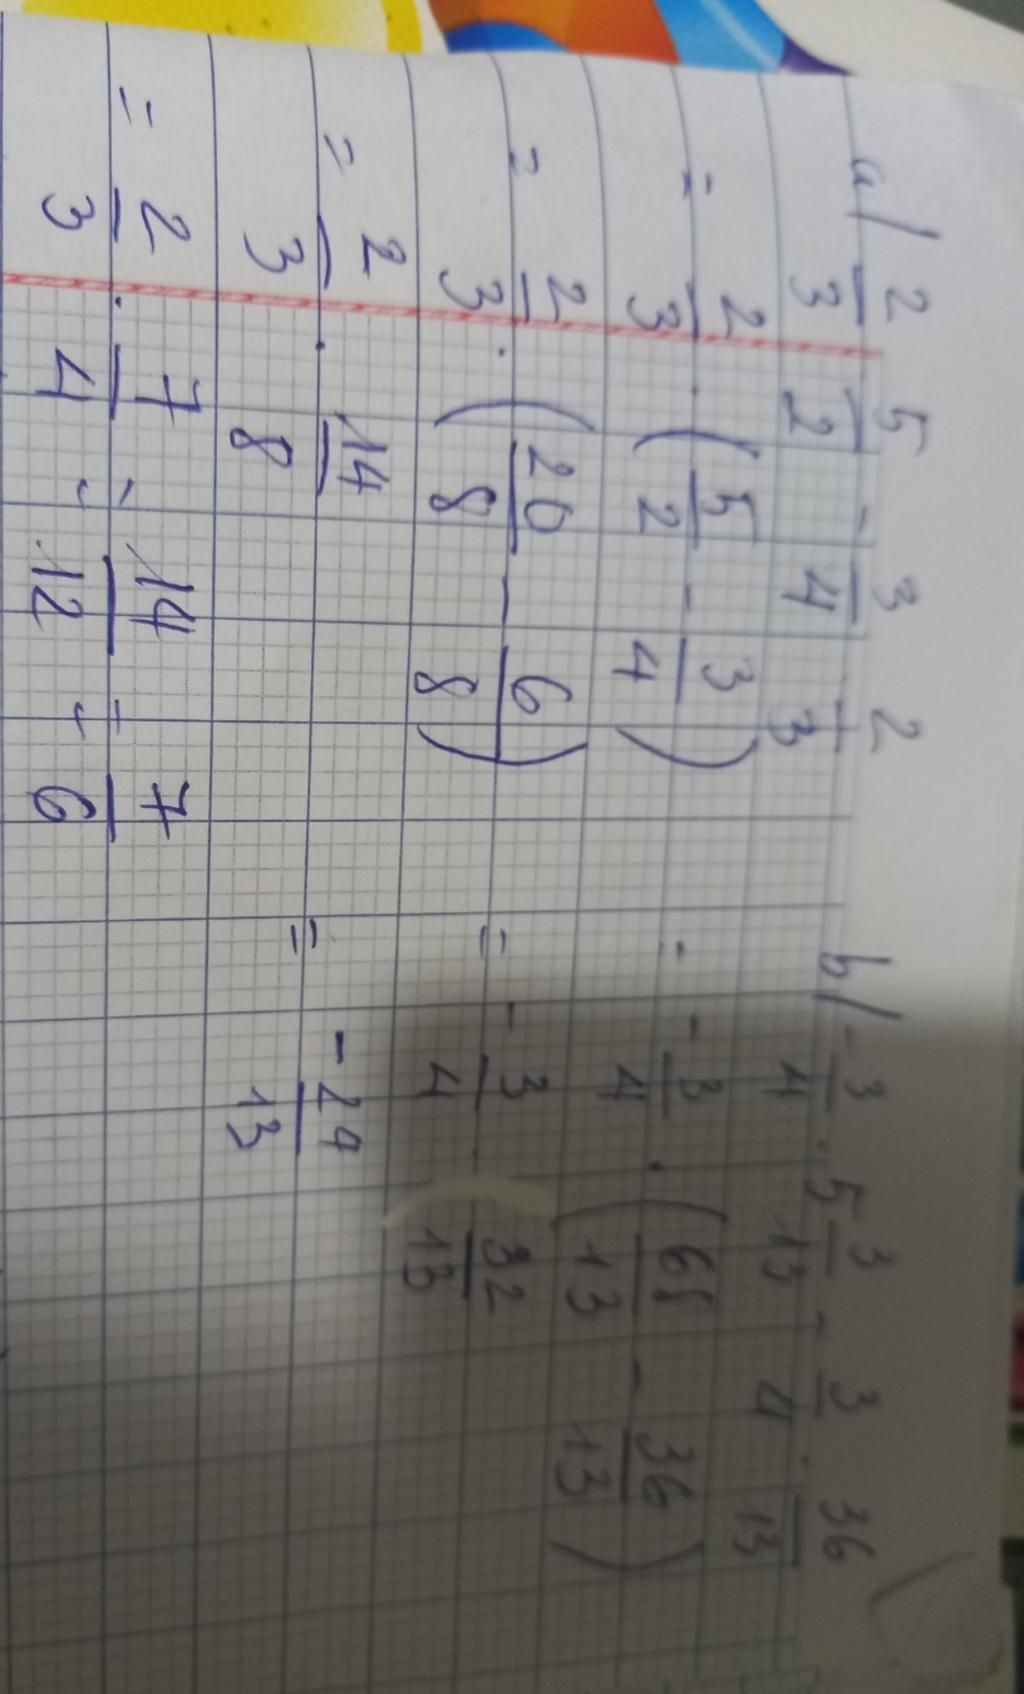 a/ 2/3 5/2 - 3/4 2/3
= 2/3 . (5/2 - 3/4)
= 2/3 . (20/8 - 6/8)
= 2/3 . 14/8
= 2/3 . 7/4 = 14/12 = 7/6
b/ -3/4 . 5 3/13 - 3/4 . 36/13
= -3/4 . (68/13 - 36/13)
= -3/4 . (32/13
= -24/13